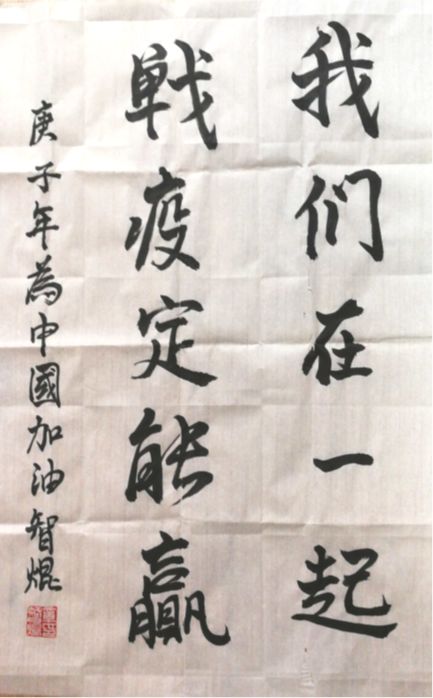 我们在一起
戦疫定能贏
庚子年為中國加油智焜